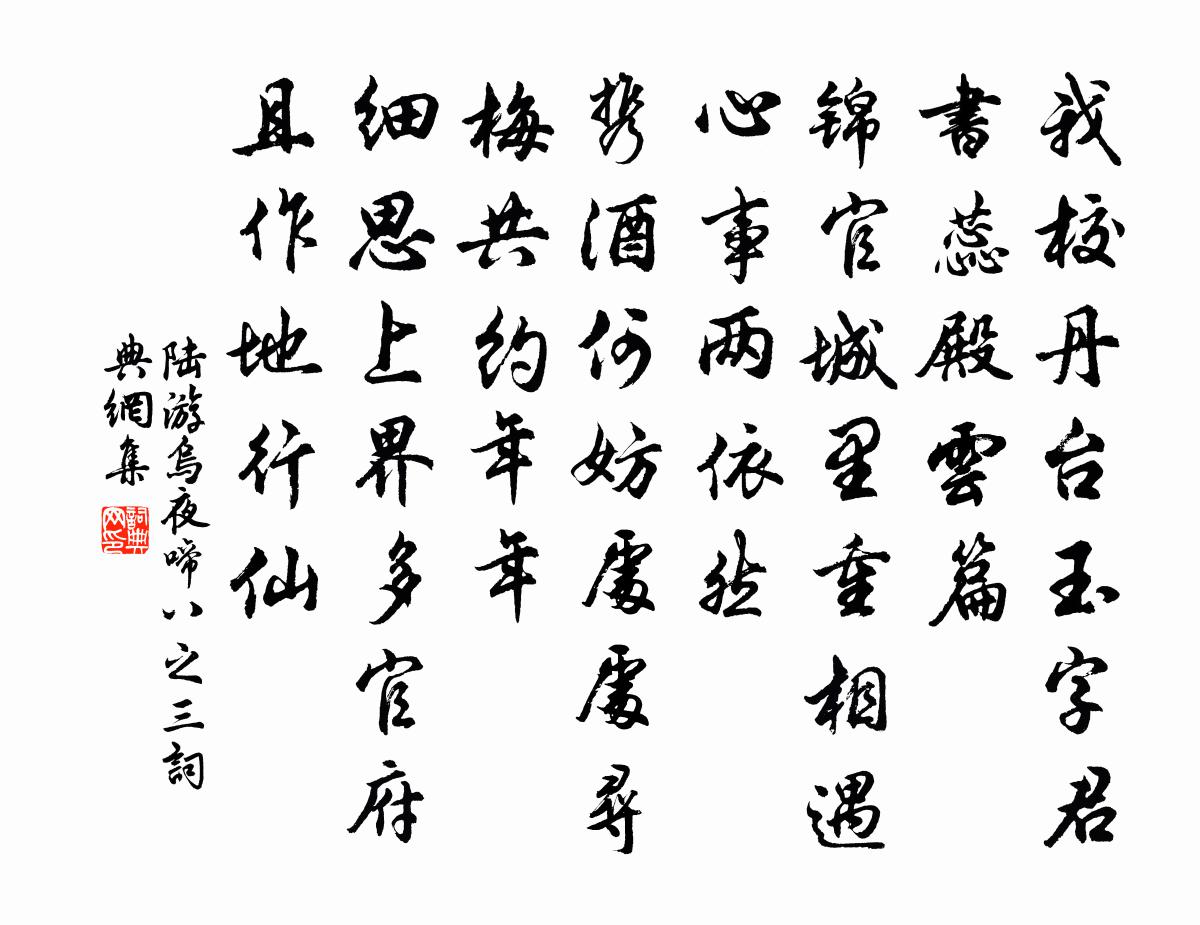 我校丹台玉字君
書蕊殿雲篇
锦官城里重相遇
心事两依然
携酒何妨處處尋
梅共约年年
细思上界多官府
且作地行仙
陆游烏夜啼八之三詞
典網集
詞典
网印